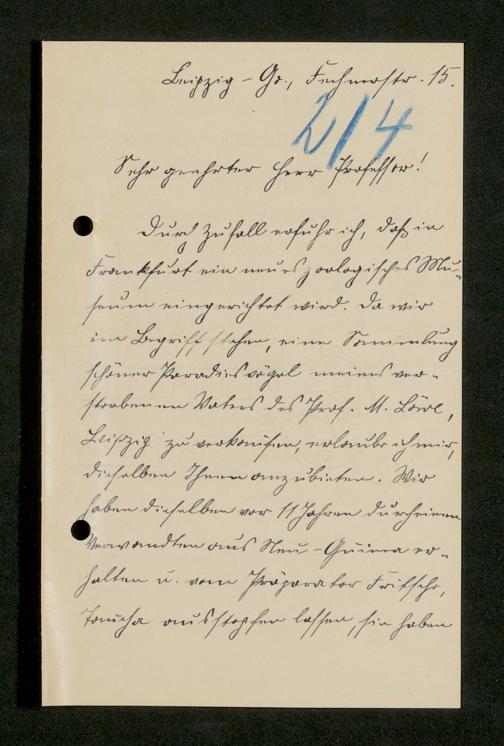 Leipzig-Go., Fechnerstr. 15.
2/4
Sehr geehrter Herr Professor!
Durch Zufall erfuhr ich, daß in
Frankfurt ein neues zoologisches Mu-
seum eingerichtet wird. Da wir
im Begriff stehen, eine Sammlung
schöner Paradiesvögel meines ver-
storbenen Vaters des Prof. M.
Leipzig zu verkaufen, erlaube ich mir,
dieselben Ihnen anzubieten. Wir
haben dieselben vor 11 Jahren durch einen
Verwandten aus Neu-Guinea er-
halten u. vom Präparator Fritsche,
Taucha ausstopfen lassen, sie haben